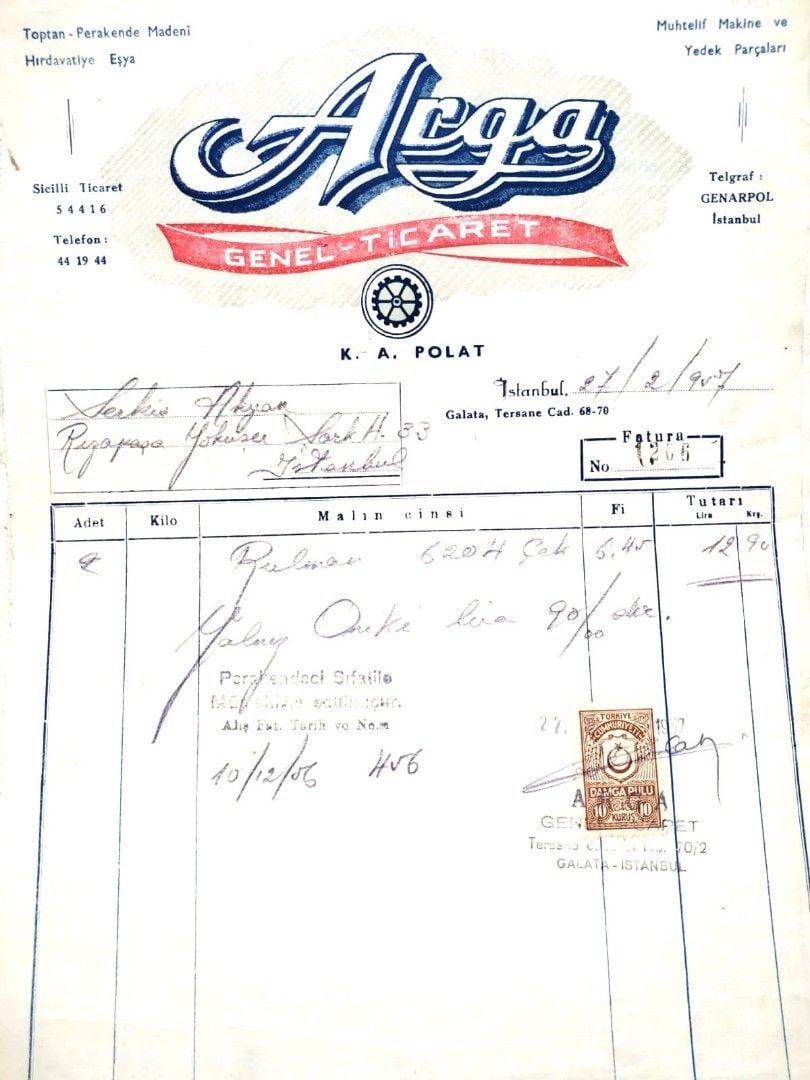 Toptan - Perakende Madenî
Hırdavatiye Eşya
Muhtelif Makine ve
Yedek Parçaları
Arga
GENEL-TİCARET
Sicilli Ticaret
54416
Telefon :
44 19 44
Telgraf :
GENARPOL
İstanbul
K. A. POLAT
İstanbul, 27/2/957
Galata, Tersane Cad. 68-70
Serkis Akyan
Rızapaşa Yokuşu Şark H. 33
İstanbul
Fatura
No 1266
Adet Kilo Malın cinsi Fi Tutarı
Lira Krş.
2 Rulman 6204 6.45 12 90
Yalnız Oniki lira 90/00 dır.
Perakendeci Sıfatile
satılmıştır.
Alış Fat. Tarih ve No.sı
10/12/56 456
TÜRKİYE
CUMHURİYETİ
DAMGA PULU
10 KURUŞ 10
ARGA
GENEL TİCARET
70/2
GALATA-İSTANBUL